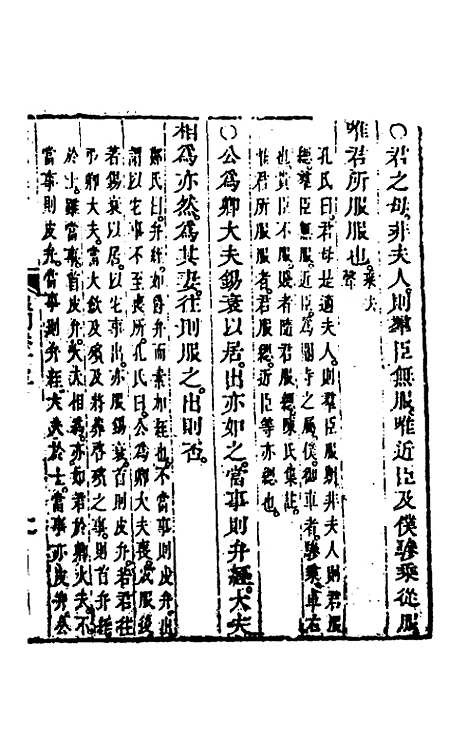 ○君之母非夫人則羣臣無服唯近臣及僕驂乘從服
唯君所服服也乘去聲
孔氏曰君母是適夫人則羣臣服期非夫人則君服
緦羣臣無服近臣為閽寺之屬僕御車者驂乘車右
也貴臣不服賤者隨君服緦陳氏集註
惟君所服服者君服緦近臣等亦緦也
○公為卿大夫錫衰以居出亦如之當事則弁絰大夫
相為亦然為其妻往則服之出則否
鄭氏曰弁絰如爵弁而素加絰也不當事則皮弁出
謂以它事不至喪所孔氏曰公為卿大夫喪成服後
若錫衰以居以它事出亦服錫衰首則皮弁若君往
弔卿大夫當大斂及殯及將葬啓殯之事則首弁絰
於士雖當事首皮弁大夫相為亦如君於卿大夫不
當事則皮弁當事則弁絰大夫於士當事亦皮弁